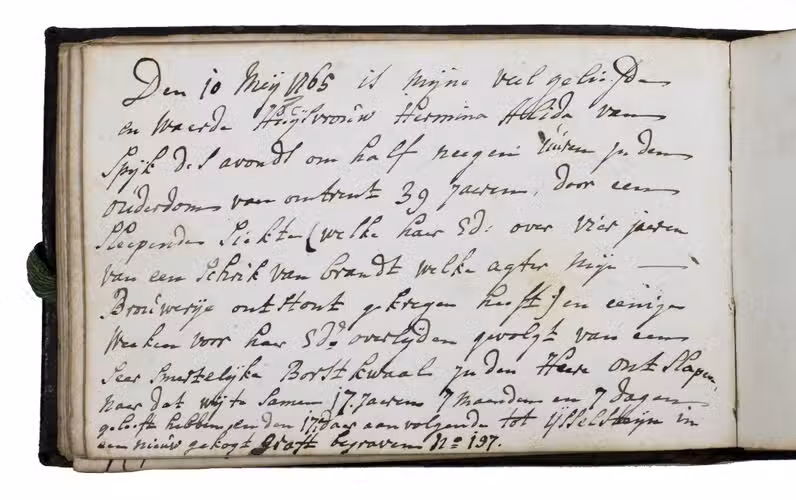 Den 10 Meij 1765 is mijne veel geliefde
en Waarde Huijsvrouw Hermina Alida van
Spijk des avonds om half neegen uuren in den
ouderdom van omtrent 39 jaaren, door een
sleepende Siekte (welke haar Ed: over vier jaaren
van een schrik van brandt welke agter mijn
Brouwerije ontstont gekregen heeft) en eenige
Weeken voor haar Ed: overlijden gevolgt van een
seer smertelijke Borstkwaal in den Heere ontslapen,
naar dat wij te samen 17 jaaren 7 maanden en 7 dagen
geleeft hebben, en den 17: daar aan volgende tot IJsselsteijn in
een nieuw gekogt graft begraven No 197.